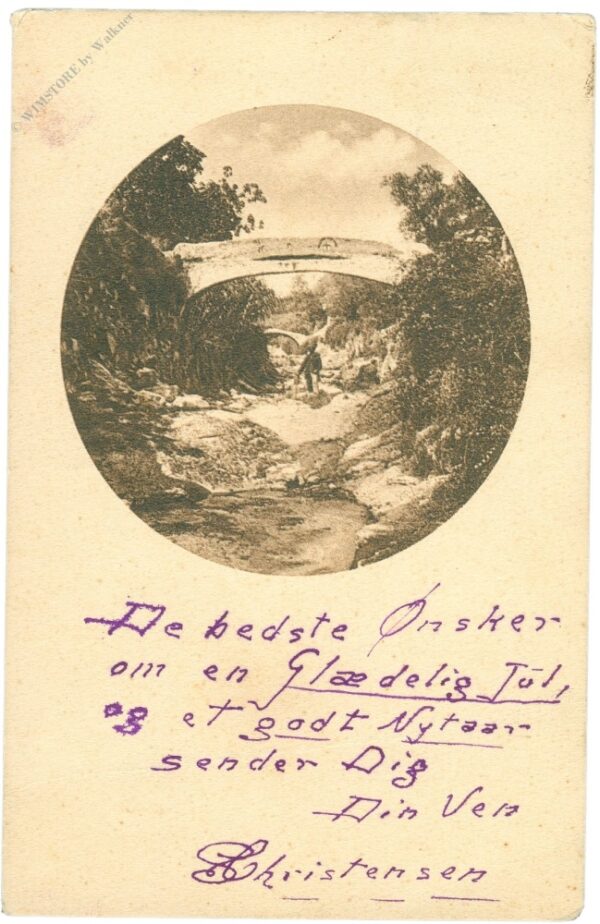 © WIMSTORE by Walkner
De bedste Ønsker
om en Glædelig Jul,
og et godt Nytaar
sender Dig
Din Ven
Christensen